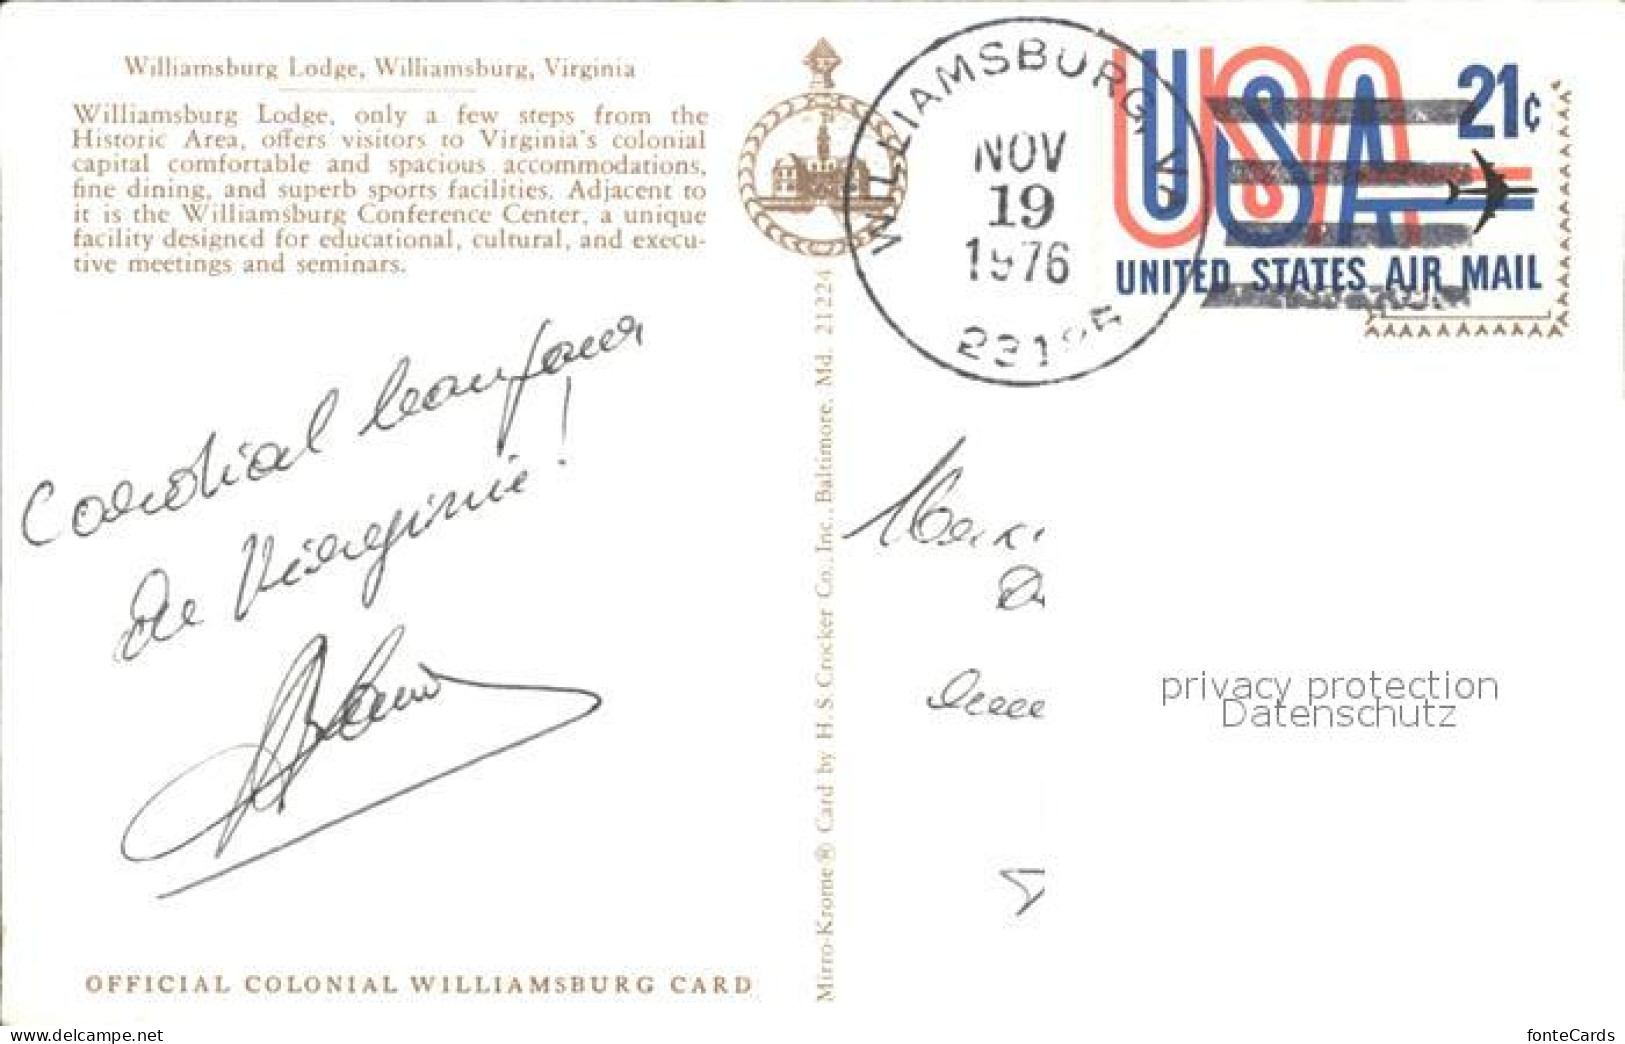 Williamsburg Lodge, Williamsburg, Virginia
Williamsburg Lodge, only a few steps from the
Historic Area, offers visitors to Virginia's colonial
capital comfortable and spacious accommodations,
fine dining, and superb sports facilities. Adjacent to
it is the Williamsburg Conference Center, a unique
facility designed for educational, cultural, and execu-
tive meetings and seminars.
Cordial
de Virginie!
OFFICIAL COLONIAL WILLIAMSBURG CARD
Mirro-Krome® Card by H. S. Crocker Co., Inc., Baltimore, Md. 21224
WILLIAMSBURG, VA
NOV
19
1976
USA
21c
UNITED STATES AIR MAIL
privacy protection
Datenschutz
www.delcampe.net
fonteCards